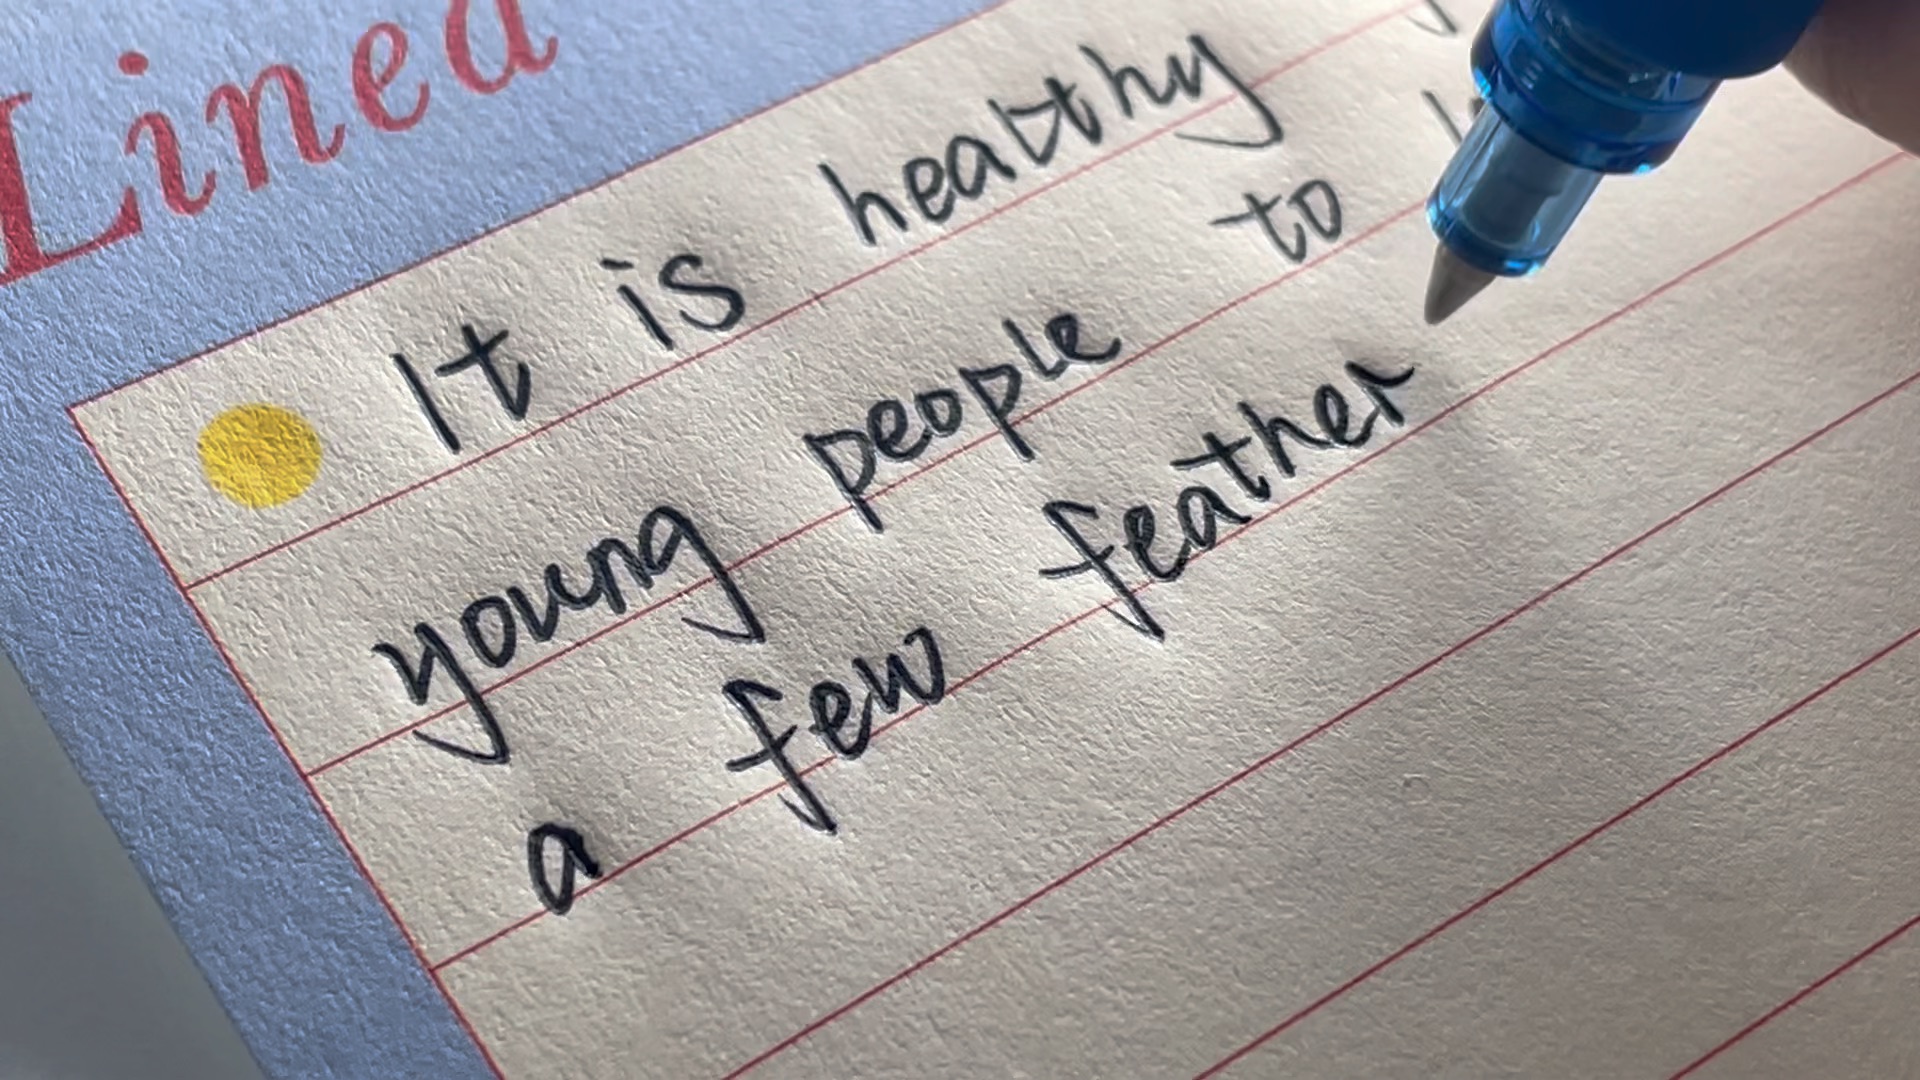 Lined
It is healthy
young people to
a few feather